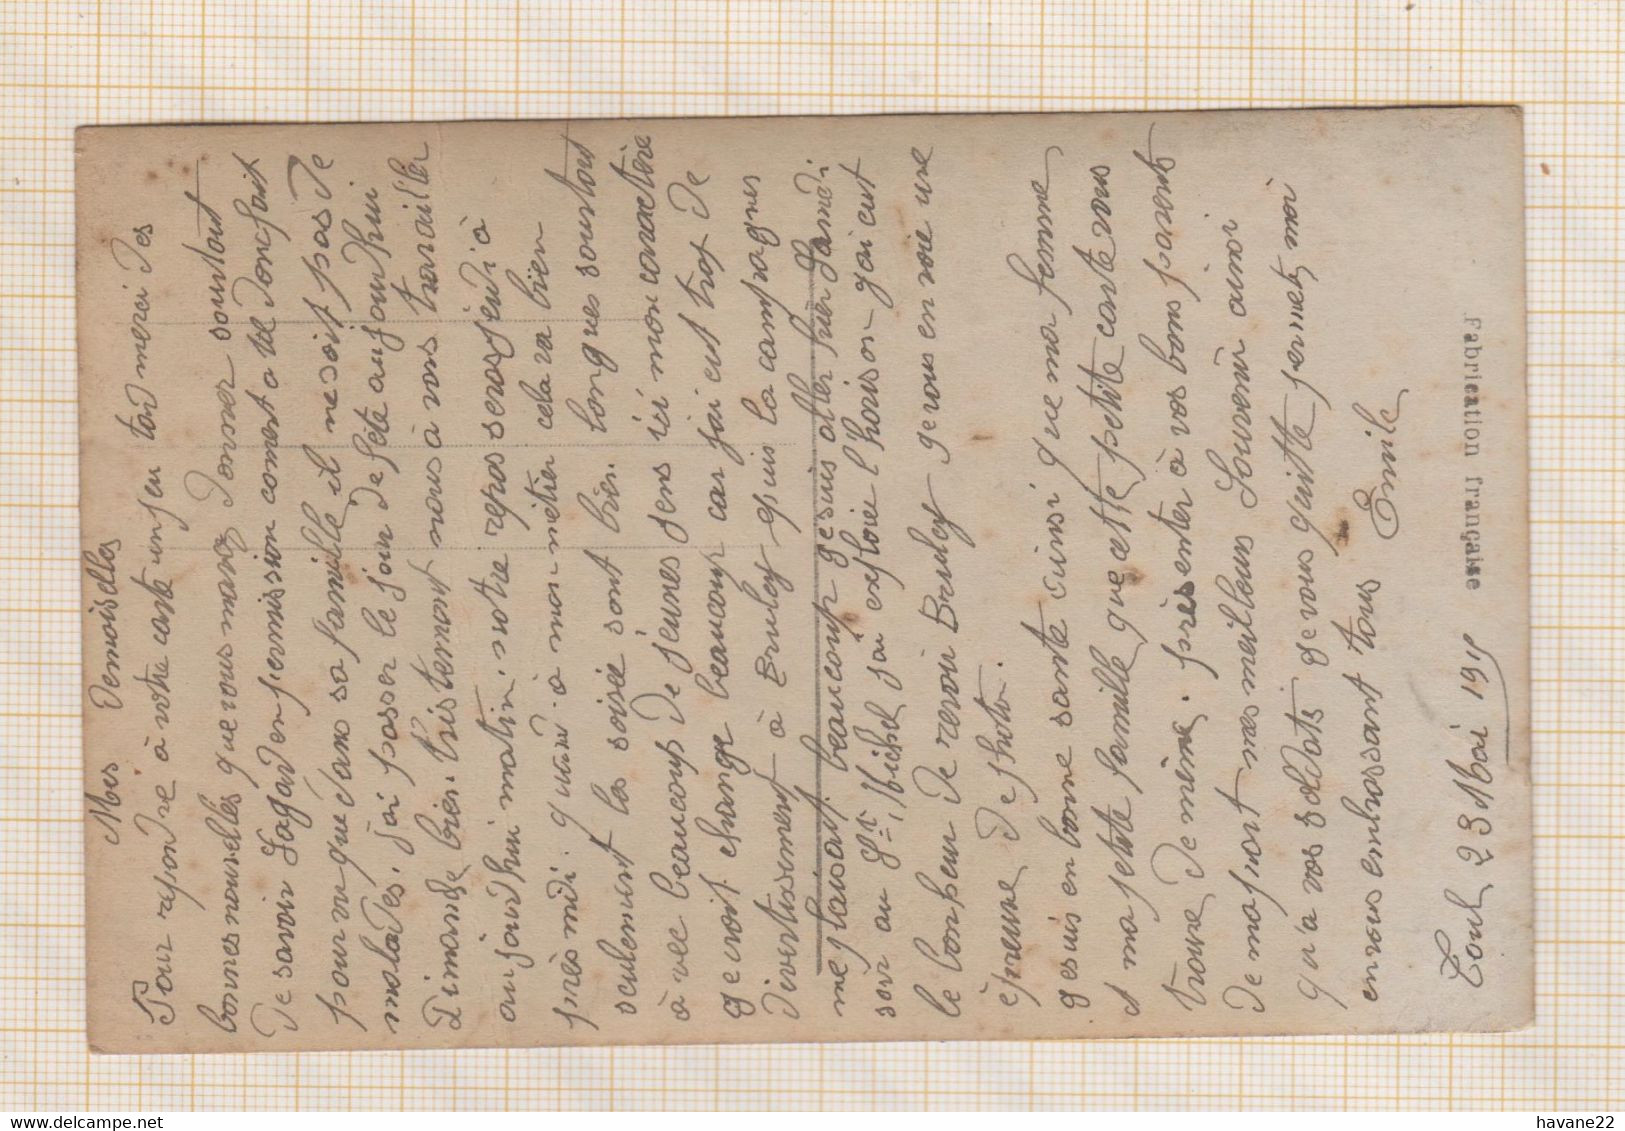 Mes Demoiselles
Pour répondre à votre carte un peu tard merci des
bonnes nouvelles que vous mavez donner surtout
de savoir en permission coment a til donc fait
pourvu que dans sa famille il ne soit pas de
malades. j'ai passer le jour de fête aujourdhui
Dimanche bien tristement nous à vons travailler
aujourdhui matin. notre repos seras jeudi à
près midi. quand à mon métier cela va bien
seulement les soirée sont bien longues surtout
à vec beaucoup de jeunes gens ici mon caractère
ge crois change beaucoup car jai eut trop de
divertissement à Bruley puis la campagnes
me plaisait beaucoup gesuis aller hier Samedi
soir au St Michel j'ai exploré l'horison jai eut
le bonheur de revoir Bruley ge vous en voie une
épreuve de photo.
ge suis en bonne santé ainsi que ma femme
et ma petite famille que cette petite carte vous
trouve de même. présenter à vos bons parents
de ma part mes meilleurs Souvenir ainsi
qu'a vos soldats ge vous quitte permet, moi
en vous embrassant tous Emile
Toul 23 Mai 1915
Fabrication française
havane22